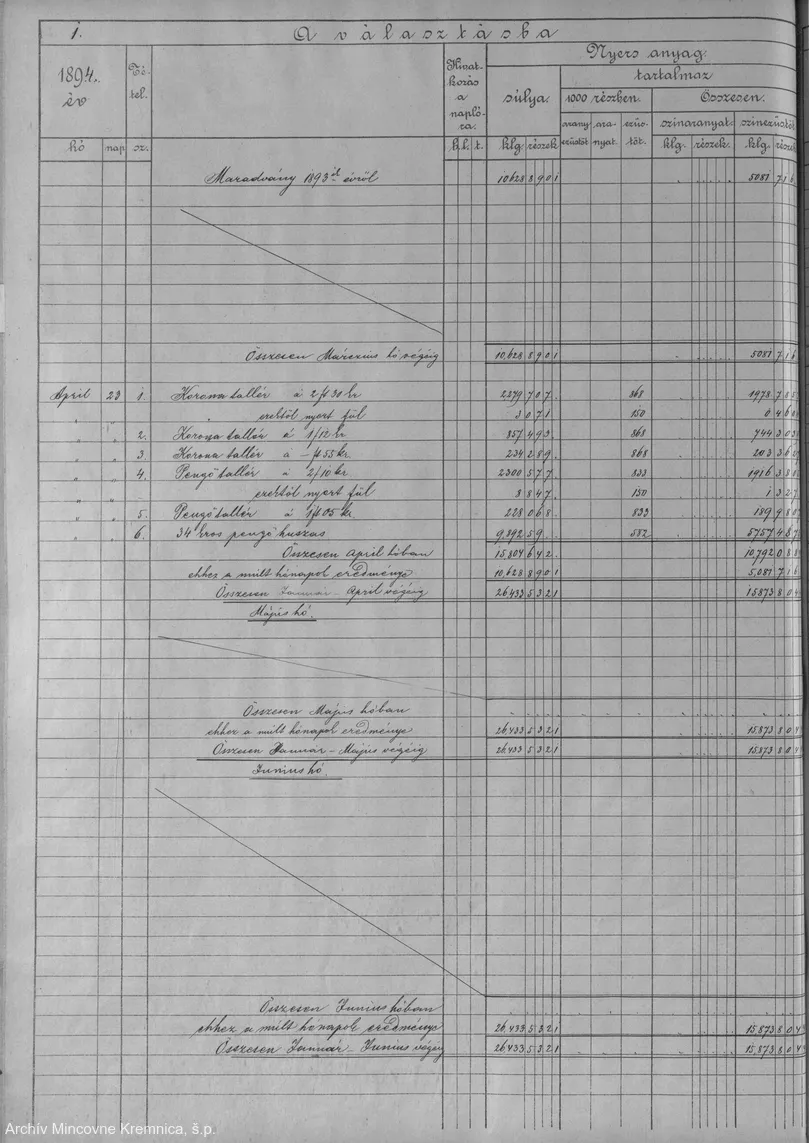 1. A választásba
Nyers anyag.
1894. Té- Hivat- tartalmaz
év tel. kozás súlya. 1000 részben. Összesen.
a
napló- arany ara- ezüs- szinaranyat szinezüstöt
ra. ezüstöt nyat. töt.
hó nap sz. k.l. t. klg. részek klg. részek klg. részek
Maradvány 1893ik évről 10628 8901 5081 716
Összesen Márczius hó végéig 10,628 8901 5081 716
April 23 1. Korona tallér á 2 ft 30 kr 2279 707. 868 1978 785
" " ezektől nyert fül 3 071 150 0 460
" " 2. Korona tallér á 1/12 kr 857 493. 868 744 303
" " 3 Korona tallér á - ft 55 kr. 234 289. 868 203 362
" " 4. Pengő tallér á 2/10 kr. 2300 577 833 1916 380
" " ezektől nyert fül 8 847. 150 1 327
" " 5. Pengő tallér á 1 ft 05 kr. 228 068. 833 189 980
" " 6. 34 kros pengő huszas 9,892 59.. 582 5757 487
Összesen April hóban 15.804 642. 10,792 088
ehhez a mult hónapok eredménye 10,628 8901 5,081 716
Összesen Januar - April végéig 26433 5321 15873 804
Május hó.
Összesen Május hóban
ehhez a mult hónapok eredménye 26,433 5321 15.873 804
Összesen Januar - Május végéig 26,433 5321 15.873 804
Junius hó.
Összesen Junius hóban
ehhez a mult hónapok eredménye 26,433 5321 15.873 804
Összesen Január - Junius végéig 26,433 5321 15.873 804
Archív Mincovne Kremnica, š.p.